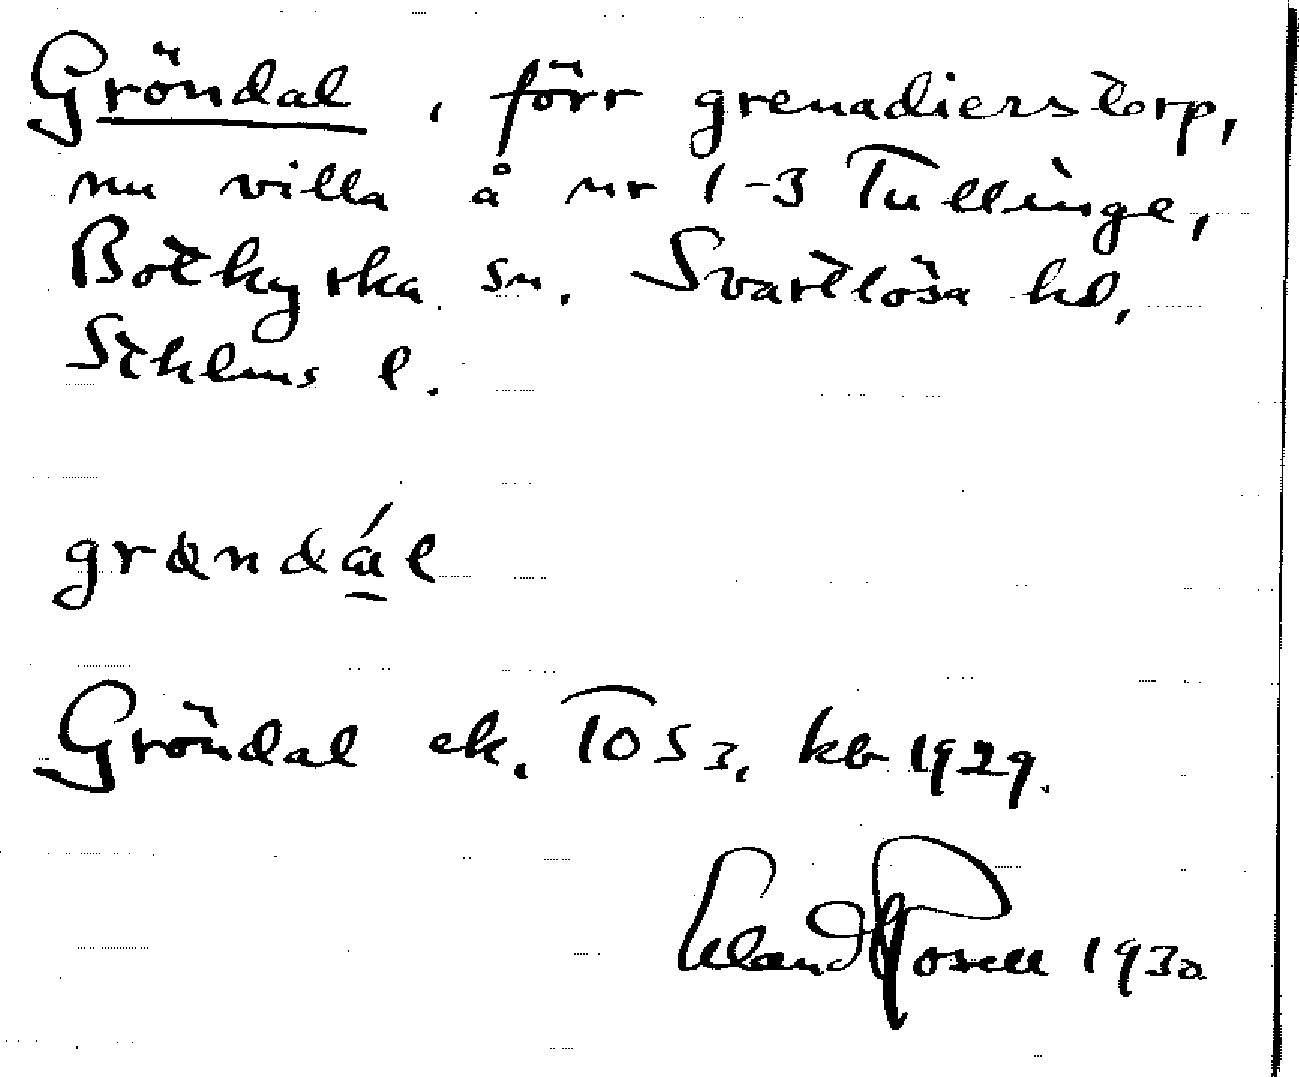 Gröndal, förr grenadierstorp,
nu villa å nr 1-3 Tullinge,
Botkyrka sn. Svartlösa hd,
Sthlms l.
Gröndal ek. TO53, kb 1929.
Erland Rosell 1930